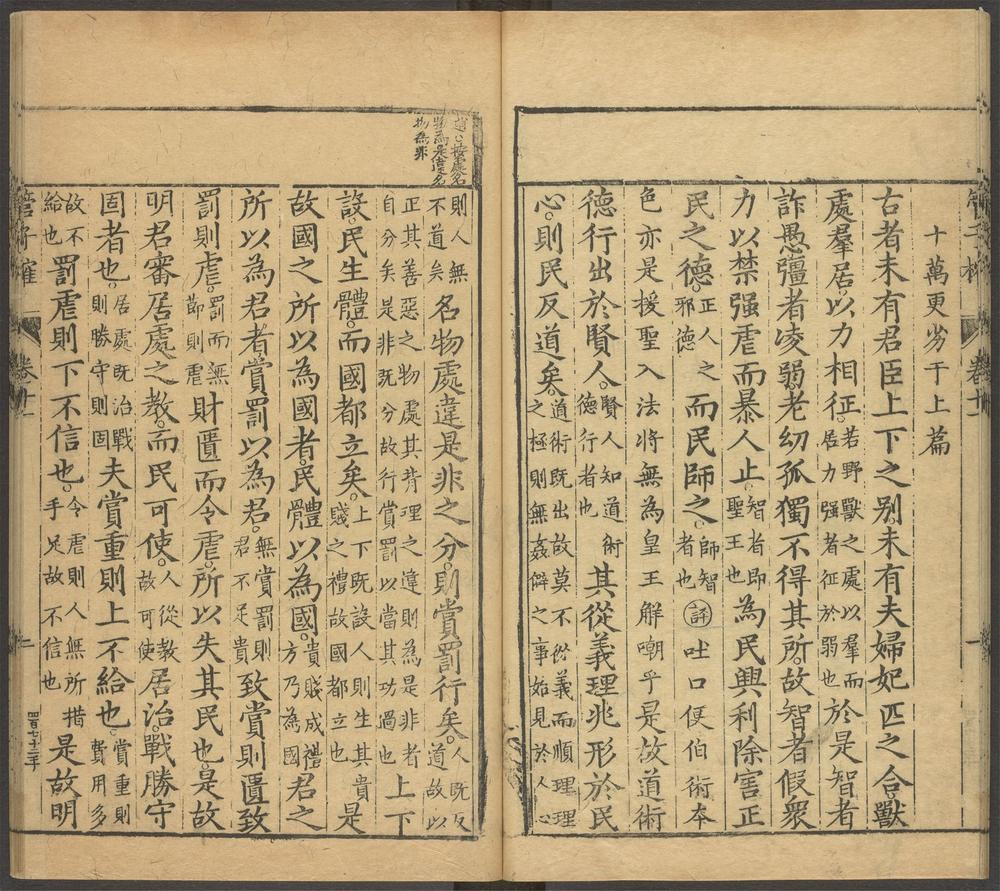 十萬更劣于上篇
古者未有君臣上下之别未有夫婦妃匹之合獸
處羣居以力相征若野獸之處以羣而居力强者征於弱也於是智者
詐愚彊者凌弱老幼孤獨不得其所故智者假衆
力以禁强虐而暴人止智者即聖王也為民興利除害正
民之德正人之邪德而民師之師智者也評吐口便伯術本
色亦是援聖入法將無為皇王解嘲乎是故道術
德行出於賢人賢人知道術德行者也其從義理兆形於民
心則民反道矣道術既出故莫不從義而順理理之極則無姦僻之事始見於人心
物為非
則人無不道矣名物處違是非之分則賞罰行矣人既反道故以
正其善惡之物處其背理之違則為是非者自分矣是非既分故行賞罰以當其功過也上下
設民生體而國都立矣上下既設人則生其貴賤之禮故國都立也是
故國之所以為國者民體以為國貴賤成禮方乃為國君之
所以為君者賞罰以為君無賞罰則君不足貴致賞則匱致
罰則虐罰而無節則虐財匱而令虐所以失其民也是故
明君審居處之教而民可使人從教故可使居治戰勝守
固者也居處既治戰則勝守則固夫賞重則上不給也賞重則費用多
故不給也罰虐則下不信也令虐則人無所措手足故不信也是故明
卷十一